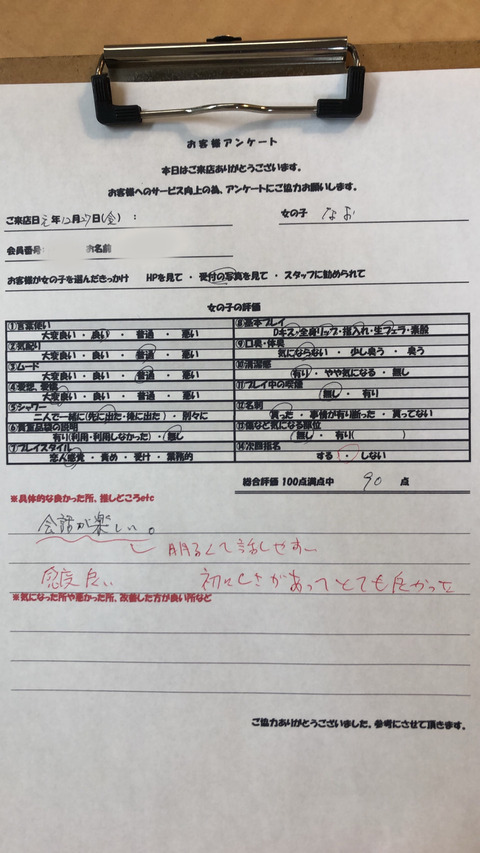 お客様アンケート
本日はご来店ありがとうございます。
お客様へのサービス向上の為、アンケートにご協力お願いします。
ご来店日 元年12月27日(金) :
女の子 なお
会員番号: お名前
お客様が女の子を選んだきっかけ HPを見て ・ 受付の写真を見て ・ スタッフに勧められて
女の子の評価
①言葉使い
大変良い ・ 良い ・ 普通 ・ 悪い
②気配り
大変良い ・ 良い ・ 普通 ・ 悪い
③ムード
大変良い ・ 良い ・ 普通 ・ 悪い
④愛想、愛嬌
大変良い ・ 良い ・ 普通 ・ 悪い
⑤シャワー
二人で一緒に(先に出た・後に出た) ・ 別々に
⑥貴重品袋の説明
有り(利用・利用しなかった) ・ 無し
⑦プレイスタイル
恋人感覚 ・ 責め ・ 受け ・ 業務的
⑧基本プレイ
Dキス・全身リップ・指入れ・生フェラ・素股
⑨口臭・体臭
気にならない ・ 少し臭う ・ 臭う
⑩清潔感
有り ・ やや気になる ・ 無し
⑪プレイ中の喫煙
無し ・ 有り
⑫名刺
貰った ・ 事情が有り断った ・ 貰ってない
⑬傷など気になる部位
無し ・ 有り( )
⑭次回指名
する ・ しない
総合評価 100点満点中 90 点
※具体的な良かった所、推しどころetc
会話が楽しい。
明るくて話しやすー
良い 初々しさがあってとても良かった
※気になった所や悪かった所、改善した方が良い所など
ご協力ありがとうございました。参考にさせて頂きます。